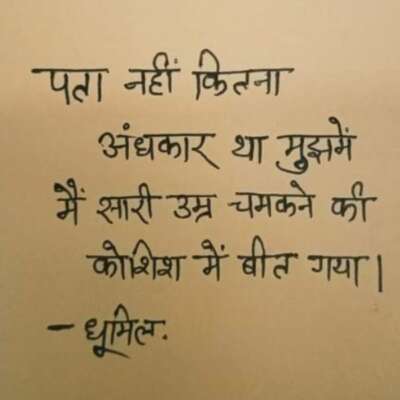 पता नहीं कितना
अंधकार था मुझमें
मैं सारी उम्र चमकने की
कोशिश में बीत गया।
- धूमिल.